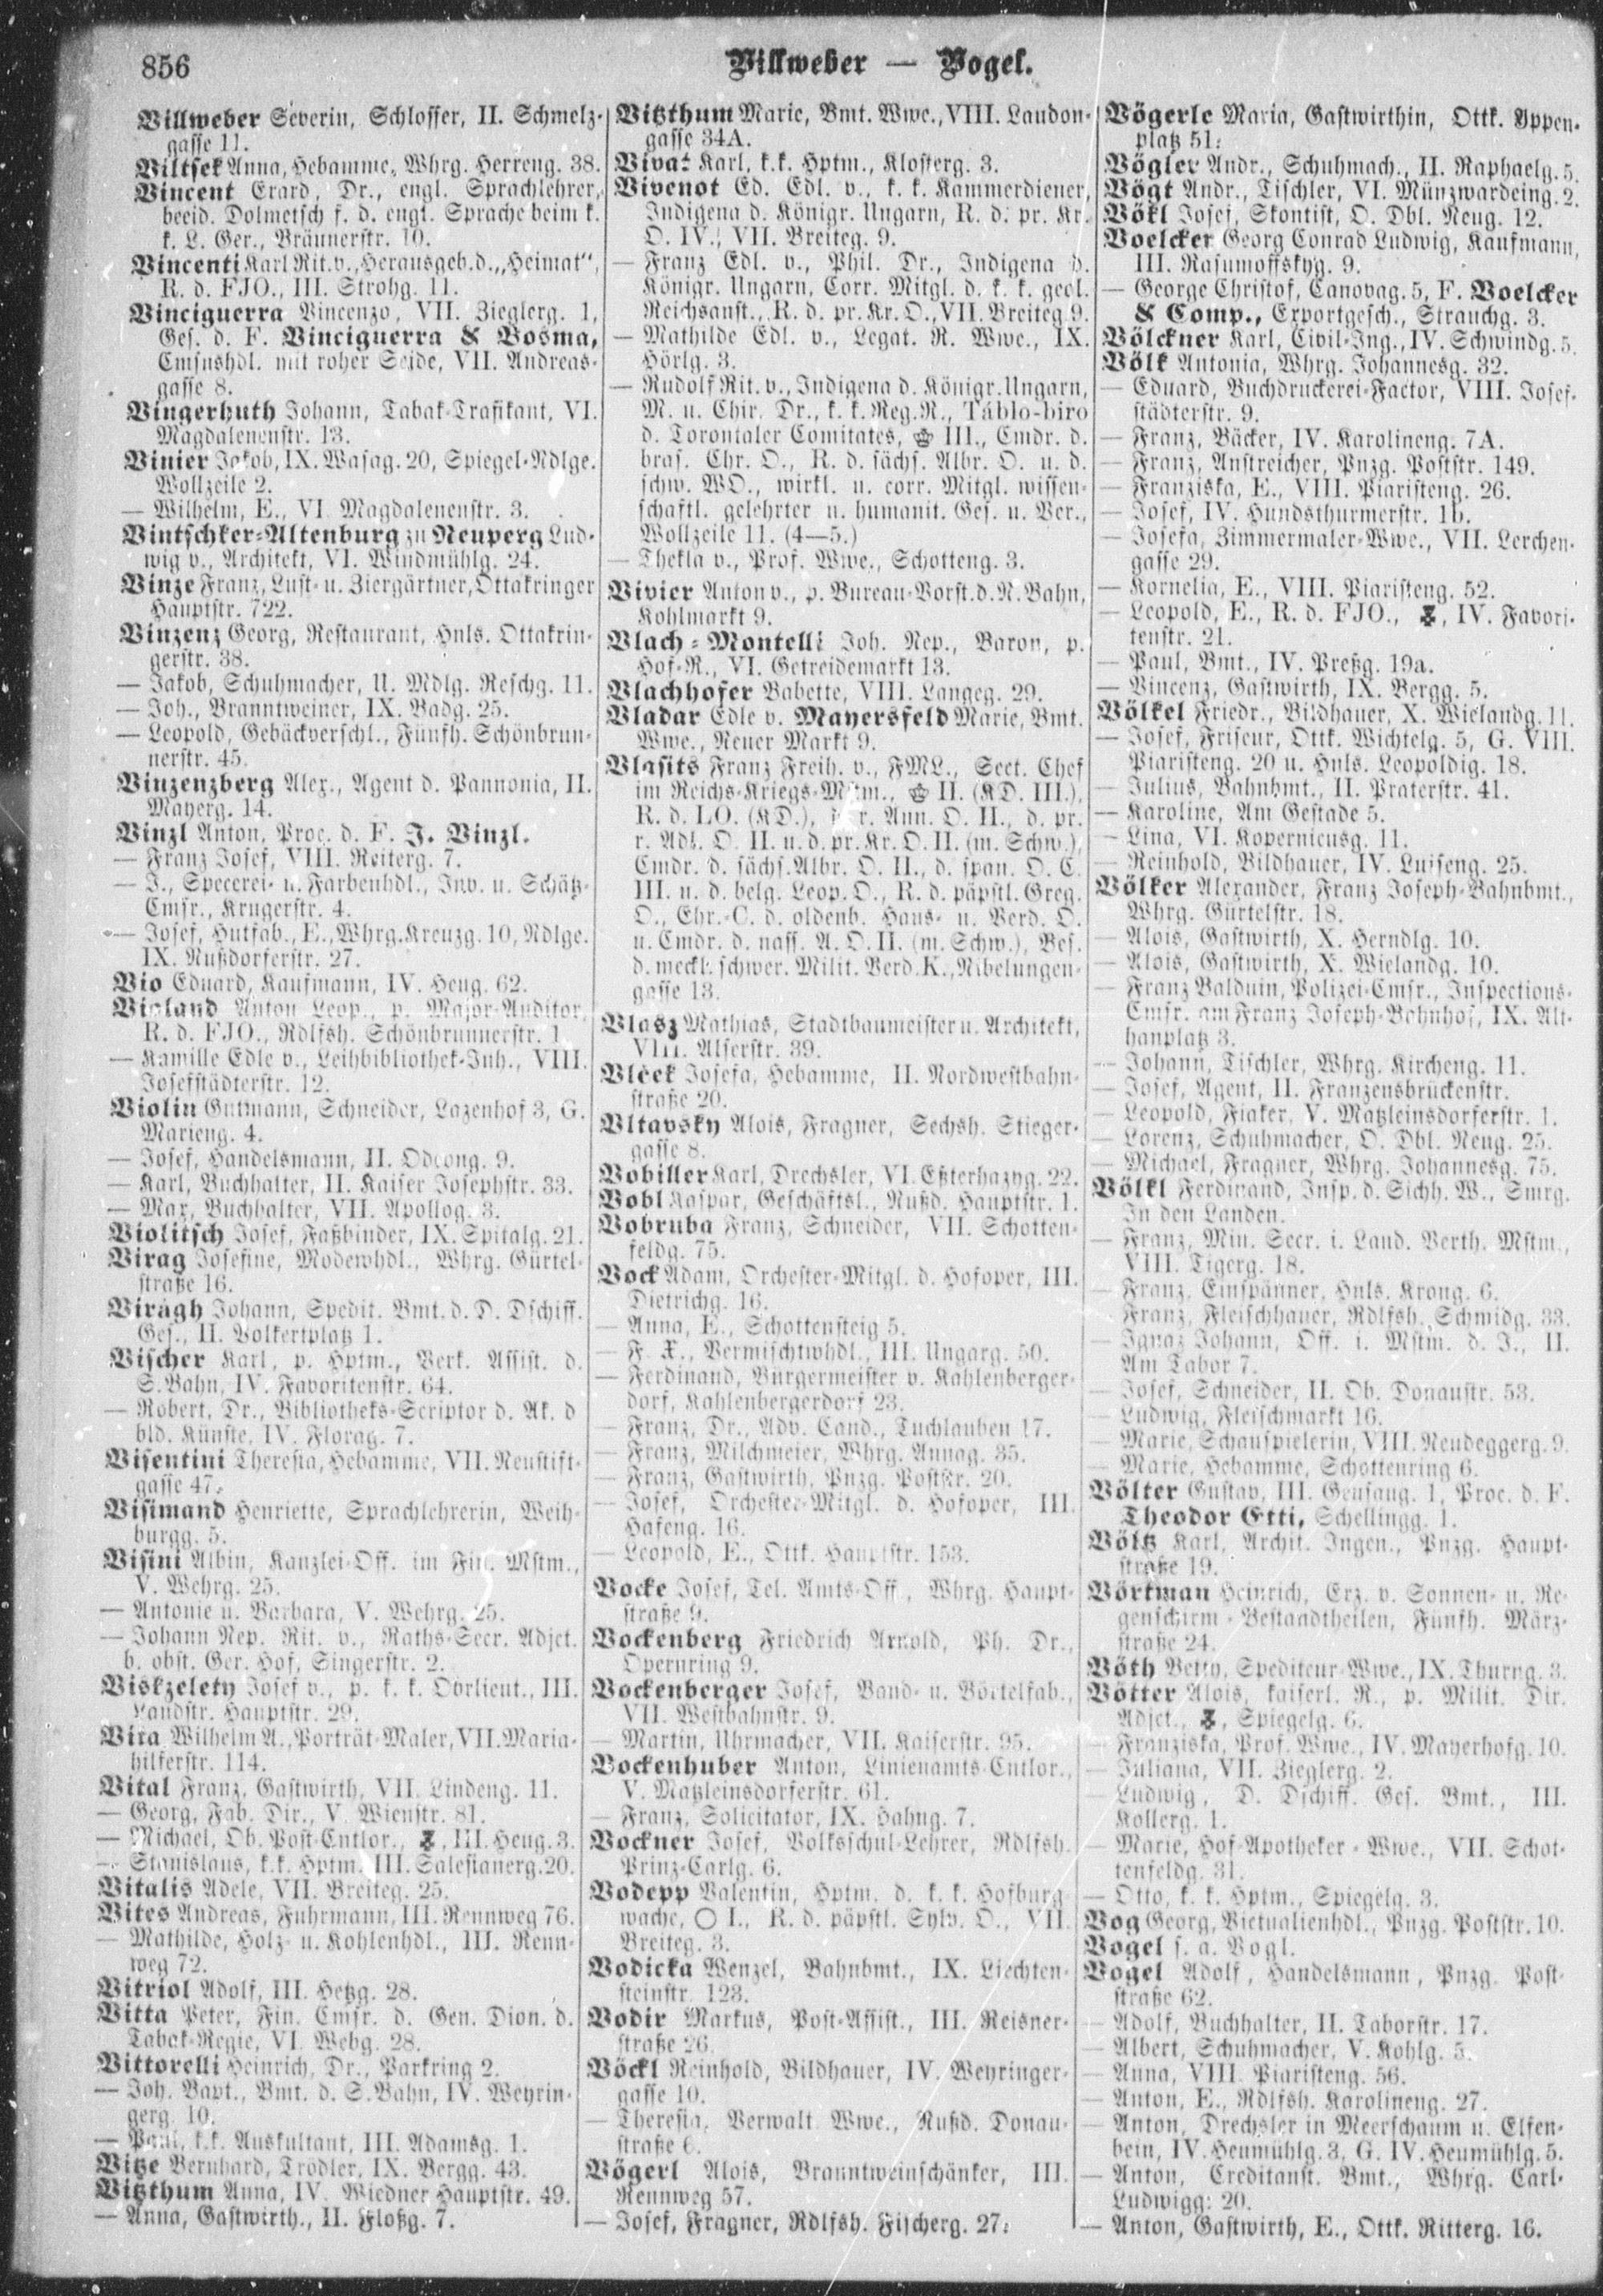 856
Villweber — Vogel.
Villweber Severin, Schlosser, II. Schmelz-
gasse 11.
Viltsek Anna, Hebamme, Whrg. Herreng. 38.
Vincent Erard, Dr., engl. Sprachlehrer,
beeid. Dolmetsch f. d. engl. Sprache beim k.
k. L. Ger., Bräunerstr. 10.
Vincenti Karl Rit. v., Herausgeb. d. „Heimat“,
R. d. FJO., III. Strohg. 11.
Vinciguerra Vincenzo, VII. Zieglerg. 1,
Ges. d. F. Vinciguerra & Bosma,
Cmsnshdl. mit roher Seide, VII. Andreas-
gasse 8.
Vingerhuth Johann, Tabak-Trafikant, VI.
Magdalenenstr. 13.
Vinier Jakob, IX. Wasag. 20, Spiegel-Ndlge.
Wollzeile 2.
— Wilhelm, E., VI. Magdalenenstr. 3.
Vintschker-Altenburg zu Neuperg Lud-
wig v., Architekt, VI. Windmühlg. 24.
Vinze Franz, Lust- u. Ziergärtner, Ottakringer
Hauptstr. 722.
Vinzenz Georg, Restaurant, Hnls. Ottakrin-
gerstr. 38.
— Jakob, Schuhmacher, U. Mdlg. Reschg. 11.
— Joh., Branntweiner, IX. Badg. 25.
— Leopold, Gebäckverschl., Fünfh. Schönbrun-
nerstr. 45.
Vinzenzberg Alex., Agent d. Pannonia, II.
Mayerg. 14.
Vinzl Anton, Proc. d. F. J. Vinzl.
— Franz Josef, VIII. Reiterg. 7.
— J., Specerei- u. Farbenhdl., Inv. u. Schätz-
Cmsr., Krugerstr. 4.
— Josef, Hutfab., E., Whrg. Kreuzg. 10, Ndlge.
IX. Nußdorferstr. 27.
Vio Eduard, Kaufmann, IV. Heug. 62.
Violand Anton Leop., p. Major-Auditor,
R. d. FJO., Rdlfsh. Schönbrunnerstr. 1.
— Kamille Edle v., Leihbibliothek-Inh., VIII.
Josefstädterstr. 12.
Violin Gutmann, Schneider, Lazenhof 3, G.
Marieng. 4.
— Josef, Handelsmann, II. Odeong. 9.
— Karl, Buchhalter, II. Kaiser Josephstr. 33.
— Max, Buchhalter, VII. Apollog. 3.
Violitsch Josef, Faßbinder, IX. Spitalg. 21.
Virag Josefine, Modewhdl., Whrg. Gürtel-
straße 16.
Virágh Johann, Spedit. Bmt. d. D. Dschiff.
Ges., II. Volkertplatz 1.
Vischer Karl, p. Hptm., Verk. Assist. d.
S. Bahn, IV. Favoritenstr. 64.
— Robert, Dr., Bibliotheks-Scriptor d. Ak. d
bld. Künste, IV. Florag. 7.
Visentini Theresia, Hebamme, VII. Neustift-
gasse 47.
Visimand Henriette, Sprachlehrerin, Weih-
burgg. 5.
Visini Albin, Kanzlei-Off. im Fin. Mstm.,
V. Wehrg. 25.
— Antonie u. Barbara, V. Wehrg. 25.
— Johann Nep. Rit. v., Raths-Secr. Adjct.
b. obst. Ger. Hof, Singerstr. 2.
Viskzelety Josef v., p. k. k. Oberlieut., III.
Landstr. Hauptstr. 29.
Vira Wilhelm A., Porträt-Maler, VII. Maria-
hilferstr. 114.
Vital Franz, Gastwirth, VII. Lindeng. 11.
— Georg, Fab. Dir., V. Wienstr. 81.
— Michael, Ob. Post-Cntlor., III. Heug. 3.
— Stanislaus, k. k. Hptm. III. Salesianerg. 20.
Vitalis Adele, VII. Breiteg. 25.
Vites Andreas, Fuhrmann, III. Rennweg 76.
— Mathilde, Holz- u. Kohlenhdl., III. Renn-
weg 72.
Vitriol Adolf, III. Hetzg. 28.
Vitta Peter, Fin. Cmsr. d. Gen. Dion. d.
Tabak-Regie, VI. Webg. 28.
Vittorelli Heinrich, Dr., Parkring 2.
— Joh. Bapt., Bmt. d. S. Bahn, IV. Weyrin-
gerg. 10.
— Paul, k.k. Auskultant, III. Adamsg. 1.
Vitze Bernhard, Trödler, IX. Bergg. 43.
Vitzthum Anna, IV. Wiedner Hauptstr. 49.
— Anna, Gastwirth., II. Floßg. 7.
Vitzthum Marie, Bmt. Wwe., VIII. Laudon-
gasse 34A.
Vivat Karl, k.k. Hptm., Klosterg. 3.
Vivenot Ed. Edl. v., k. k. Kammerdiener,
Indigena d. Königr. Ungarn, R. d. pr. Kr.
O. IV., VII. Breiteg. 9.
— Franz Edl. v., Phil. Dr., Indigena d.
Königr. Ungarn, Corr. Mitgl. d. k. k. geol.
Reichsanst., R. d. pr. Kr. O., VII. Breiteg 9.
— Mathilde Edl. v., Legat. R. Wwe., IX.
Hörlg. 3.
— Rudolf Rit. v., Indigena d. Königr. Ungarn,
M. u. Chir. Dr., k. k. Reg. R., Táblo-biro
d. Torontaler Comitates, III., Cmdr. d.
bras. Chr. O., R. d. sächs. Albr. O. u. d.
schw. WO., wirkl. u. corr. Mitgl. wissen-
schaftl. gelehrter u. humanit. Ges. u. Ver.,
Wollzeile 11. (4—5.)
— Thekla v., Prof. Wwe., Schotteng. 3.
Vivier Anton v., p. Bureau-Vorst. d. N. Bahn,
Kohlmarkt 9.
Vlach-Montelli Joh. Nep., Baron, p.
Hof-R., VI. Getreidemarkt 13.
Vlachhofer Babette, VIII. Langeg. 29.
Vladar Edle v. Mayersfeld Marie, Bmt.
Wwe., Neuer Markt 9.
Vlasits Franz Freih. v., FML., Sect. Chef
im Reichs-Kriegs-Mstm., II. (KD. III.),
R. d. LO. (KD.), r. Ann. O. II., d. pr.
r. Adl. O. II. u. d. pr. Kr. O. II. (m. Schw.),
Cmdr. d. sächs. Albr. O. II., d. span. O. C.
III. u. d. belg. Leop. O., R. d. päpstl. Greg.
O., Ehr.-C. d. oldenb. Haus- u. Verd. O.
u. Cmdr. d. nass. A. O. II. (m. Schw.), Bes.
d. meckl. schwer. Milit. Verd. K., Nibelungen-
gasse 13.
Vlasz Mathias, Stadtbaumeister u. Architekt,
VIII. Alserstr. 39.
Vlček Josefa, Hebamme, II. Nordwestbahn-
straße 20.
Vltavsky Alois, Fragner, Sechsh. Stieger-
gasse 8.
Vobiller Karl, Drechsler, VI. Eßterhazyg. 22.
Vobl Kaspar, Geschäftsl., Nußd. Hauptstr. 1.
Vobruba Franz, Schneider, VII. Schotten-
feldg. 75.
Vock Adam, Orchester-Mitgl. d. Hofoper, III.
Dietrichg. 16.
— Anna, E., Schottensteig 5.
— F. X., Vermischtwhdl., III. Ungarg. 50.
— Ferdinand, Bürgermeister v. Kahlenberger-
dorf, Kahlenbergerdorf 23.
— Franz, Dr., Adv. Cand., Tuchlauben 17.
— Franz, Milchmeier, Whrg. Annag. 35.
— Franz, Gastwirth, Pnzg. Poststr. 20.
— Josef, Orchester-Mitgl. d. Hofoper, III.
Hafeng. 16.
— Leopold, E., Ottk. Hauptstr. 153.
Vocke Josef, Tel. Amts-Off., Whrg. Haupt-
straße 9.
Vockenberg Friedrich Arnold, Ph. Dr.,
Opernring 9.
Vockenberger Josef, Band- u. Börtelfab.,
VII. Westbahnstr. 9.
— Martin, Uhrmacher, VII. Kaiserstr. 95.
Vockenhuber Anton, Linienamts-Cntlor.,
V. Matzleinsdorferstr. 61.
— Franz, Solicitator, IX. Hahng. 7.
Vockner Josef, Volksschul-Lehrer, Rdlfsh.
Prinz-Carlg. 6.
Vodepp Valentin, Hptm. d. k. k. Hofburg
wache, ◯ I., R. d. päpstl. Sylv. O., VII.
Breiteg. 3.
Vodicka Wenzel, Bahnbmt., IX. Liechten-
steinstr. 123.
Vodir Markus, Post-Assist., III. Reisner-
straße 26.
Vöckl Reinhold, Bildhauer, IV. Weyringer-
gasse 10.
— Theresia, Verwalt. Wwe., Nußd. Donau-
straße 6.
Vögerl Alois, Branntweinschänker, III.
Rennweg 57.
— Josef, Fragner, Rdlfsh. Fischerg. 27.
Vögerle Maria, Gastwirthin, Ottk. Eppen-
platz 51.
Vögler Andr., Schuhmach., II. Raphaelg. 5.
Vögt Andr., Tischler, VI. Münzwardeing. 2.
Vökl Josef, Skontist, O. Dbl. Neug. 12.
Voelcker Georg Conrad Ludwig, Kaufmann,
III. Rasumoffskyg. 9.
— George Christof, Canovag. 5, F. Voelcker
& Comp., Exportgesch., Strauchg. 3.
Völckner Karl, Civil-Ing., IV. Schwindg. 5.
Völk Antonia, Whrg. Johannesg. 32.
— Eduard, Buchdruckerei-Factor, VIII. Josef-
städterstr. 9.
— Franz, Bäcker, IV. Karolineng. 7A.
— Franz, Anstreicher, Pnzg. Poststr. 149.
— Franziska, E., VIII. Piaristeng. 26.
— Josef, IV. Hundsthurmerstr. 1b.
— Josefa, Zimmermaler-Wwe., VII. Lerchen-
gasse 29.
— Kornelia, E., VIII. Piaristeng. 52.
— Leopold, E., R. d. FJO., IV. Favori-
tenstr. 21.
— Paul, Bmt., IV. Preßg. 19a.
— Vincenz, Gastwirth, IX. Bergg. 5.
Völkel Friedr., Bildhauer, X. Wielandg. 11.
— Josef, Friseur, Ottk. Wichtelg. 5, G. VIII.
Piaristeng. 20 u. Hnls. Leopoldig. 18.
— Julius, Bahnbmt., II. Praterstr. 41.
— Karoline, Am Gestade 5.
— Lina, VI. Kopernicusg. 11.
— Reinhold, Bildhauer, IV. Luiseng. 25.
Völker Alexander, Franz Joseph-Bahnbmt.,
Whrg. Gürtelstr. 18.
— Alois, Gastwirth, X. Herndlg. 10.
— Alois, Gastwirth, X. Wielandg. 10.
— Franz Balduin, Polizei-Cmsr., Inspections-
Cmsr. am Franz Joseph-Bahnhof, IX. Alt-
hanplatz 3.
— Johann, Tischler, Whrg. Kircheng. 11.
— Josef, Agent, II. Franzensbrückenstr.
— Leopold, Fiaker, V. Matzleinsdorferstr. 1.
— Lorenz, Schuhmacher, O. Dbl. Neug. 25.
— Michael, Fragner, Whrg. Johannesg. 75.
Völkl Ferdinand, Insp. d. Sichh. W., Smrg.
In den Landen.
— Franz, Min. Secr. i. Land. Verth. Mstm.,
VIII. Tigerg. 18.
— Franz, Einspänner, Hnls. Krong. 6.
— Franz, Fleischhauer, Rdlfsh. Schmidg. 33.
— Ignaz Johann, Off. i. Mstm. d. J., II.
Am Tabor 7.
— Josef, Schneider, II. Ob. Donaustr. 53.
— Ludwig, Fleischmarkt 16.
— Marie, Schauspielerin, VIII. Neudeggerg. 9.
— Marie, Hebamme, Schottenring 6.
Völter Gustav, III. Geusaug. 1, Proc. d. F.
Theodor Etti, Schellingg. 1.
Völtz Karl, Archit. Ingen., Pnzg. Haupt-
straße 19.
Vörtman Heinrich, Erz. v. Sonnen- u. Re-
genschirm-Bestandtheilen, Fünfh. März-
straße 24.
Vöth Betty, Spediteur-Wwe., IX. Thurng. 3.
Vötter Alois, kaiserl. R., p. Milit. Dir.
Adjct., Spiegelg. 6.
— Franziska, Prof. Wwe., IV. Mayerhofg. 10.
— Juliana, VII. Zieglerg. 2.
— Ludwig, D. Dschiff. Ges. Bmt., III.
Kollerg. 1.
— Marie, Hof-Apotheker-Wwe., VII. Schot-
tenfeldg. 31.
— Otto, k. k. Hptm., Spiegelg. 3.
Vog Georg, Victualienhdl., Pnzg. Poststr. 10.
Vogel s. a. Vogl.
Vogel Adolf, Handelsmann, Pnzg. Post-
straße 62.
— Adolf, Buchhalter, II. Taborstr. 17.
— Albert, Schuhmacher, V. Kohlg. 5.
— Anna, VIII. Piaristeng. 56.
— Anton, E., Rdlfsh. Karolineng. 27.
— Anton, Drechsler in Meerschaum u. Elfen-
bein, IV. Heumühlg. 3, G. IV. Heumühlg. 5.
— Anton, Creditanst. Bmt., Whrg. Carl-
Ludwigg. 20.
— Anton, Gastwirth, E., Ottk. Ritterg. 16.